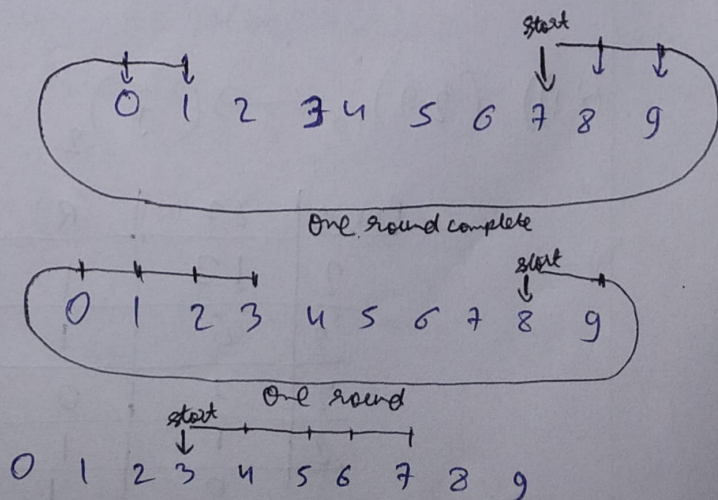 start
0 1 2 3 4 5 6 7 8 9
One round complete
start
0 1 2 3 4 5 6 7 8 9
One round
start
0 1 2 3 4 5 6 7 8 9